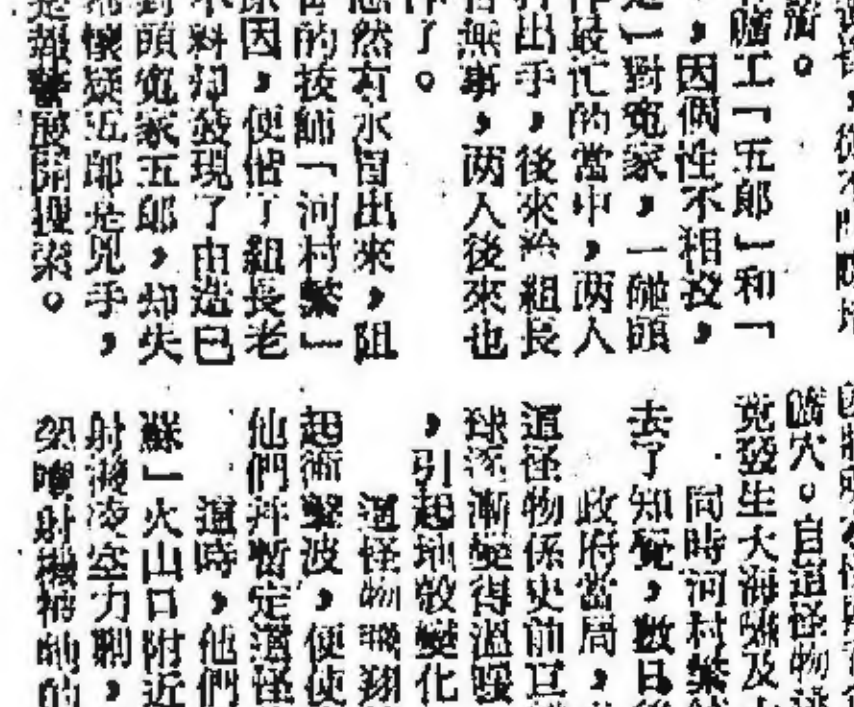 礦工「五郎」和「
，因個性不相投，
」對冤家，一碰頭
作最忙的當中，兩人
打出手，後來給組長
若無事，兩人後來也
作了。
忽然有水冒出來，阻
的技師「河村繁」
原因，便偕了組長老
不料却發現了由造已
對頭冤家五郎，却失
懷疑五郎是兇手，
報警展開搜索。
礦穴。自這怪物
竟發生大海嘯及
同時河村繁
去了知覺，數日後
政府當局，
這怪物係史前巨
球逐漸變得溫暖
，引起地殼變化
這怪物飛翔
起衝擊波，便使
他們并暫定這怪
這時，他們
蘇」火山口附近
凌空力
架噴射機